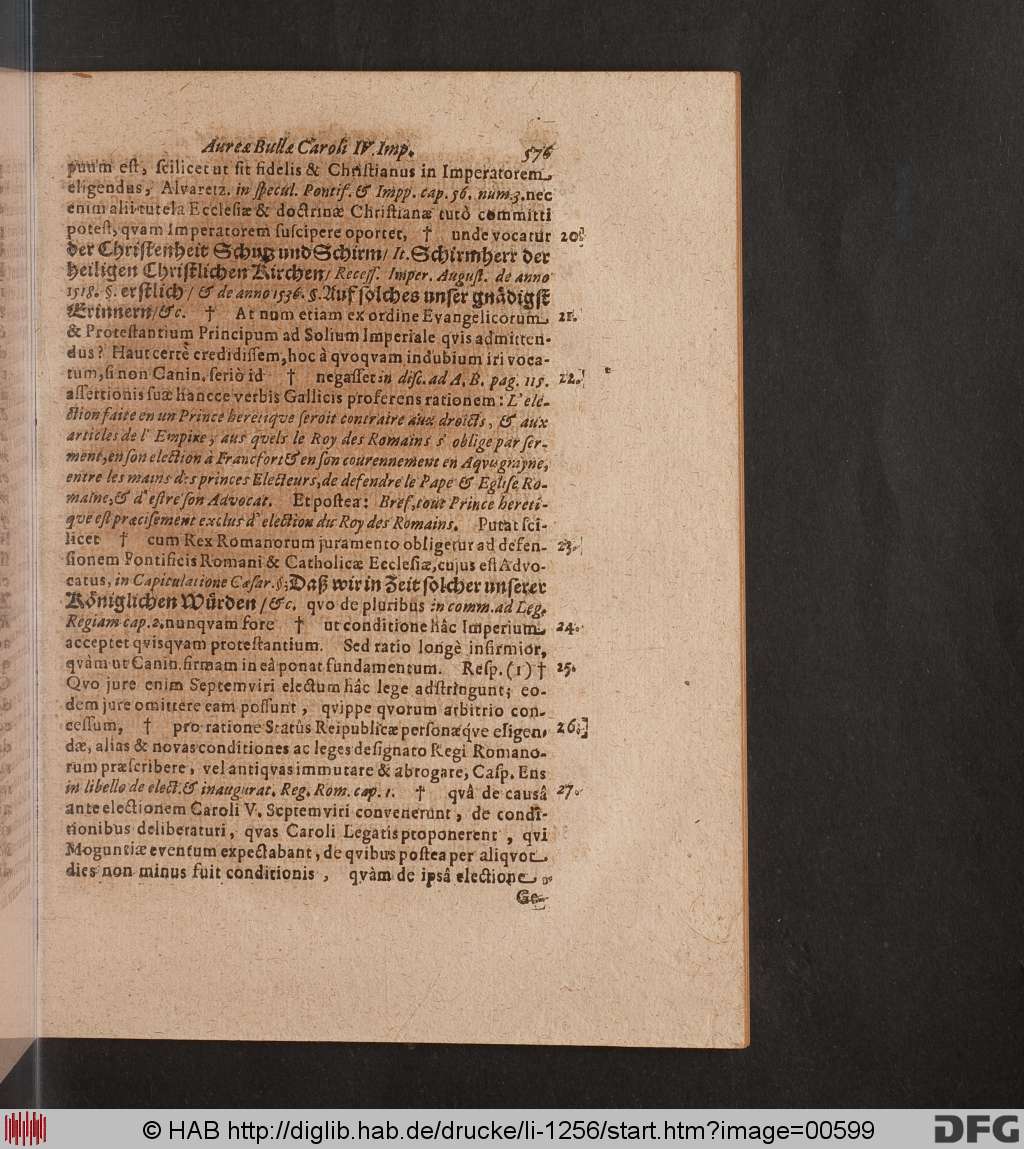 Aureæ Bullæ Caroli IV. Imp. 576
puum est, scilicet ut sit fidelis & Christianus in Imperatorem
eligendus, Alvaretz. in specul. Pontif. & Impp. cap. 56. num. 3. nec
enim alii tutela Ecclesiæ & doctrinæ Christianæ tutò committi
potest, qvam Imperatorem suscipere oportet, † unde vocatur 20.
der Christenheit Schutz und Schirm/ It. Schirmherr der
heiligen Christlichen Kirchen/ Recess. Imper. August. de anno
1518. §. erstlich/ & de anno 1536. §. Auf solches unser gnädigst
Erinnern/&c. † At num etiam ex ordine Evangelicorum 21.
& Protestantium Principum ad Solium Imperiale qvis admitten-
dus? Haut certè credidissem, hoc à qvoqvam indubium iri voca-
tum, si non Canin. seriò id † negasset in disc. ad A. B. pag. 115. 22.
assertionis suæ hancce verbis Gallicis proferens rationem: L'ele-
ction faite en un Prince heretiqve seroit contraire aux droicts, & aux
articles de l' Empire, aus qvels le Roy des Romains s' oblige par ser-
ment, en son election à Francfort & en son courennement en Aqvugrayne,
entre les mains des princes Electeurs, de defendre le Pape & Eglise Ro-
maine, & d' estre son Advocat. Et postea: Bref, tout Prince hereti-
qve est præcisement exclus d' election du Roy des Romains. Putat sci-
licet † cum Rex Romanorum juramento obligetur ad defen- 23.
sionem Pontificis Romani & Catholicæ Ecclesiæ, cujus est Advo-
catus, in Capitulatione Cæsar. §; Daß wir in Zeit solcher unserer
Königlichen Würden/&c. qvo de pluribus in comm. ad Leg.
Regiam cap. 2. nunqvam fore † ut conditione hâc Imperium 24.
acceptet qvisqvam protestantium. Sed ratio longè infirmior,
qvàm ut Canin. firmam in eâ ponat fundamentum. Resp. (1) † 25.
Qvo jure enim Septemviri electum hâc lege adstringunt; eo-
dem jure omittere eam possunt, qvippe qvorum arbitrio con-
cessum, † pro ratione Statûs Reipublicæ personæq́ve eligen- 26.
dæ, alias & novas conditiones ac leges designato Regi Romano-
rum præscribere, vel antiqvas immutare & abrogare, Casp. Ens
in libello de elect. & inaugurat. Reg. Rom. cap. 1. † qvâ de causâ 27.
ante electionem Caroli V. Septemviri convenerunt, de condi-
tionibus deliberaturi, qvas Caroli Legatis proponerent, qvi
Moguntiæ eventum expectabant, de qvibus postea per aliqvot
dies non minus fuit conditionis, qvàm de ipsâ electione
Ge-
© HAB http://diglib.hab.de/drucke/li-1256/start.htm?image=00599
DFG